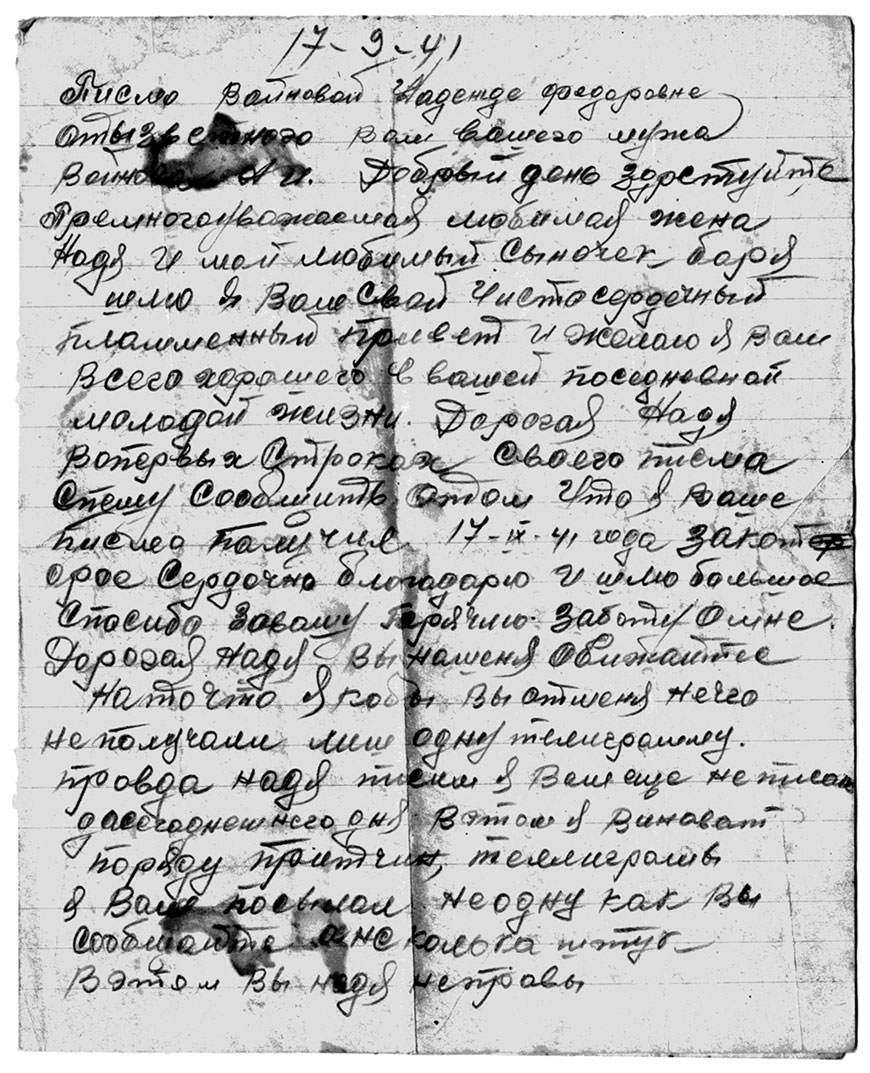 17-9-41
Писмо Войновой Надежде федоровне
отызвестного вам вашего мужа
Войнова А И. Добрый день здрстуйте
Премногоуважаемая любимая жена
Надя И мой любимый Сыночек боря
шлю я Вам Свой Чистосердечный
пламменный привет И желаю я Вам
Всего хорошего в вашей поседневной
молодой жизни. Дорогая Надя
Вопервых Строках Своего писма
Спешу Сообщить отом Что я ваше
писмо получил 17-IX-41 года закот
орое Сердочно благодарю И шлю большое
Спасибо Завашу Горячию Заботу Омне.
Дорогая Надя Вы наменя Обижаитес
Наточто якобы Вы отменя нечго
неполучали лиш одну телиграмму.
правда надя писим я Вам еще неписал
дасегоднешнего дня Вэтом я виноват
поряду притчин, теллиграмы
я Вам посылал неодну как Вы
сообщаите анесколька штук
Вэтом Вы надя неправы